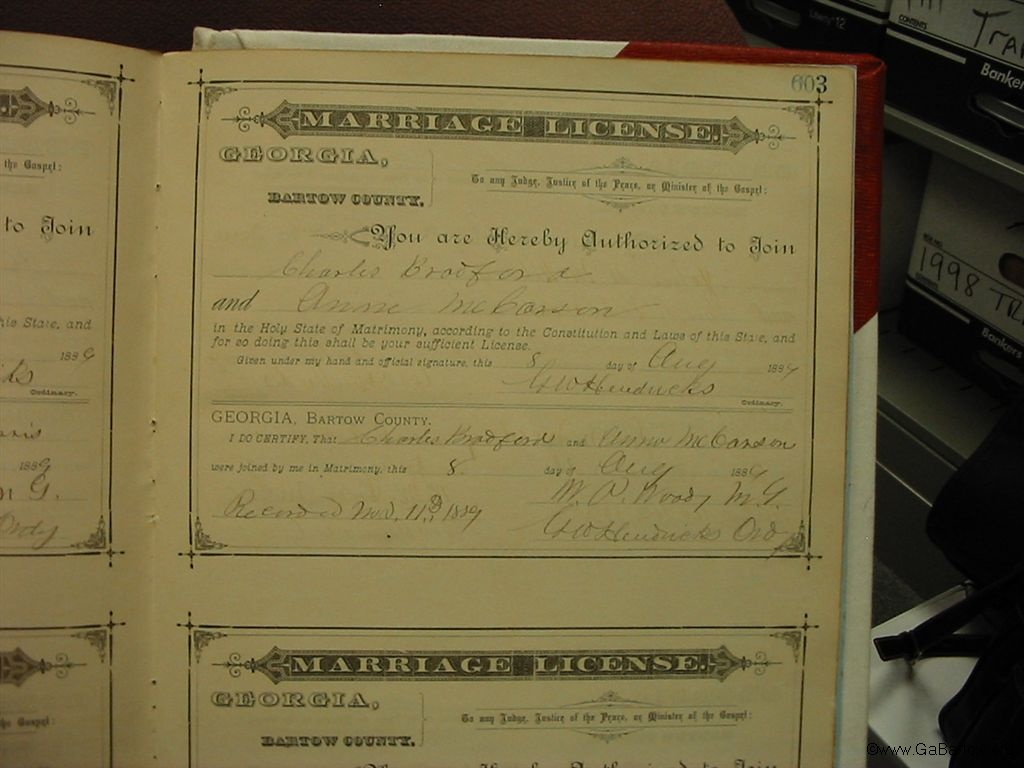 603
MARRIAGE LICENSE.
GEORGIA,
BARTOW COUNTY.
To any Judge, Justice of the Peace, or Minister of the Gospel:
You are Hereby Authorized to Join
Charles Bradford
and Anna McCarson
in the Holy State of Matrimony, according to the Constitution and Laws of this State, and
for so doing this shall be your sufficient License.
Given under my hand and official signature, this 8 day of Aug 1889
GW Hendricks
Ordinary.
GEORGIA, BARTOW COUNTY.
I DO CERTIFY, That Charles Bradford and Anna McCarson
were joined by me in Matrimony, this 8 day of Aug 1889
W. P. Woody M.G.
Recorded Nov. 11th 1889
GW Hendricks Ord
MARRIAGE LICENSE.
GEORGIA,
To any Judge, Justice of the Peace, or Minister of the Gospel:
BARTOW COUNTY.
You are Hereby Authorized to Join
the Gospel:
to Join
his State, and
1889
Ordinary.
1889
G.
Ordy
the Gospel:
Liberty 12
CONTENTS
Tra
Banker
1998 TR
Bankers
©www.GaBe